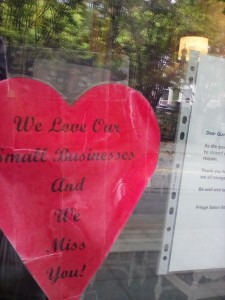 We Love Our
Small Businesses
And
We
Miss
You!
Dear Our
As the
be closed
Thank you
Be well and
Image Salon